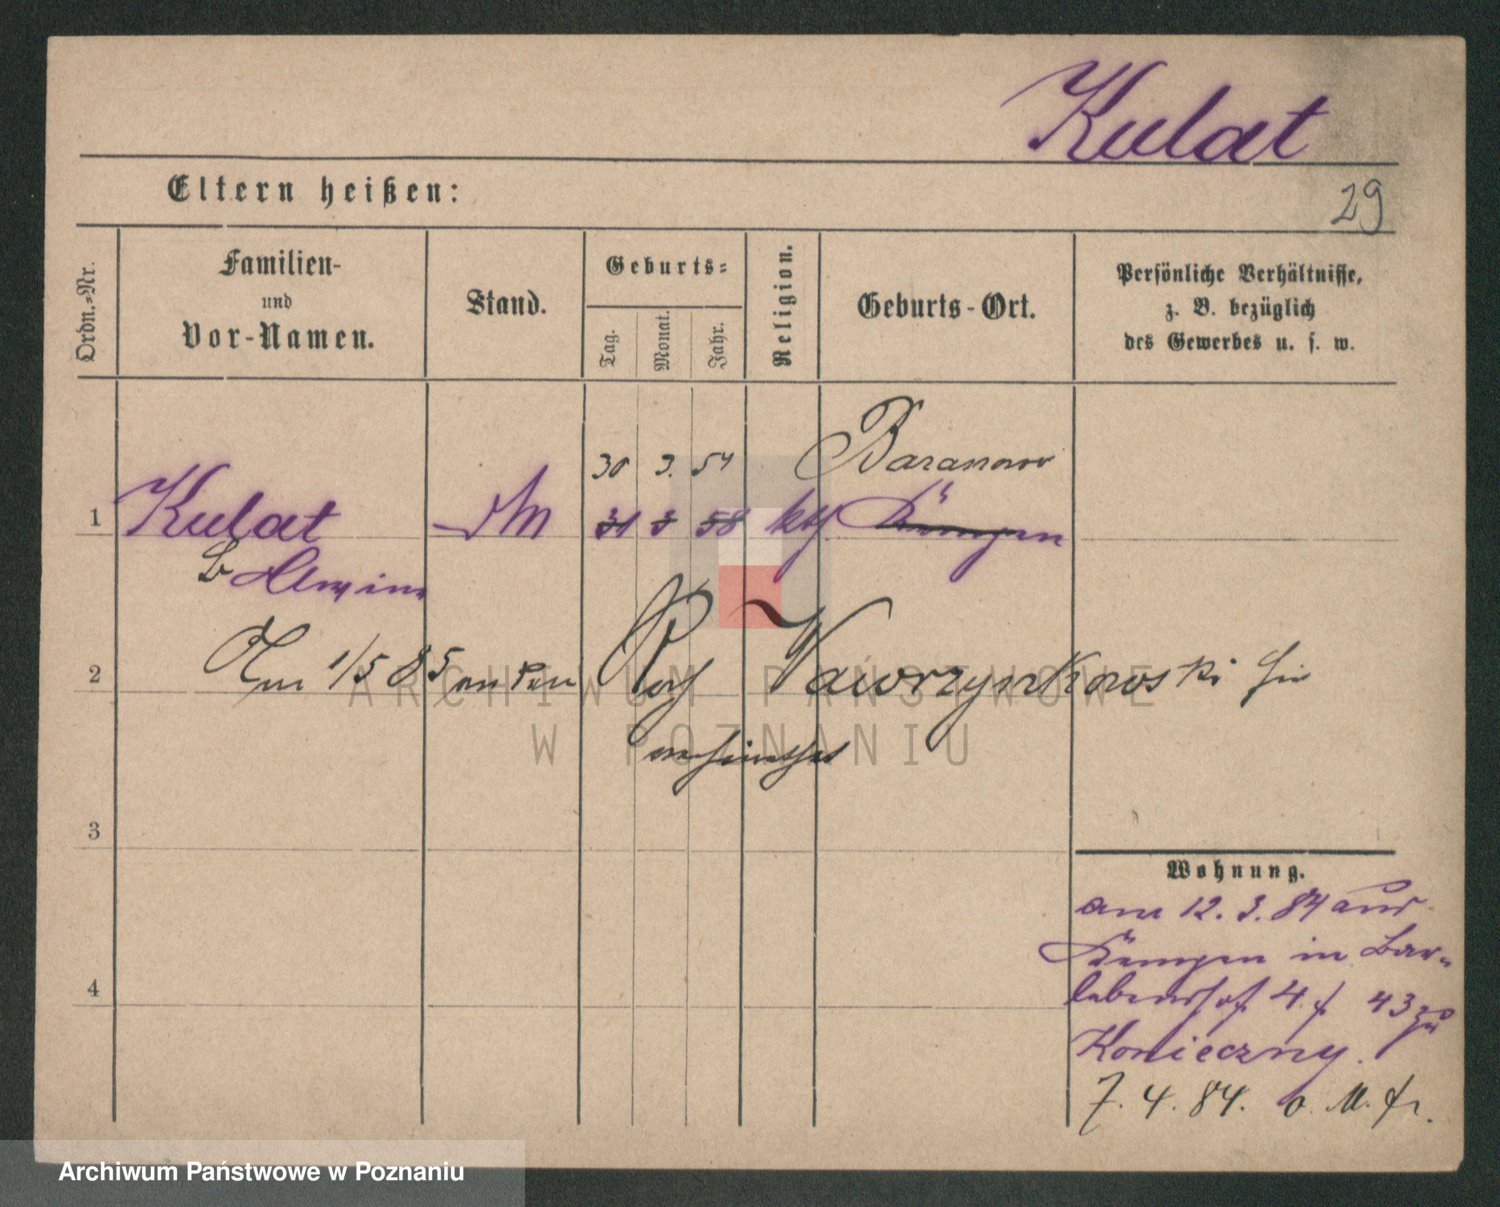 Kulat
Eltern heißen:
29
Ordn.-Nr.
Familien-
und
Vor-Namen.
Stand.
Geburts-
Tag.
Monat.
Jahr.
Religion.
Geburts-Ort.
Persönliche Verhältnisse,
z. B. bezüglich
des Gewerbes u. s. w.
30 3. 54 Baranow
1 Kulat 31 3 58 kth. Kempen
2 Am 1/5 85 an den Wawrzynkowski hier
3
4
Wohnung.
am 12. 3. 84 aus
Kempen in Bar-
lebenshof 4. 43 zu
Konieczny.
7. 4. 84.
ARCHIWUM PAŃSTWOWE
W POZNANIU
Archiwum Państwowe w Poznaniu